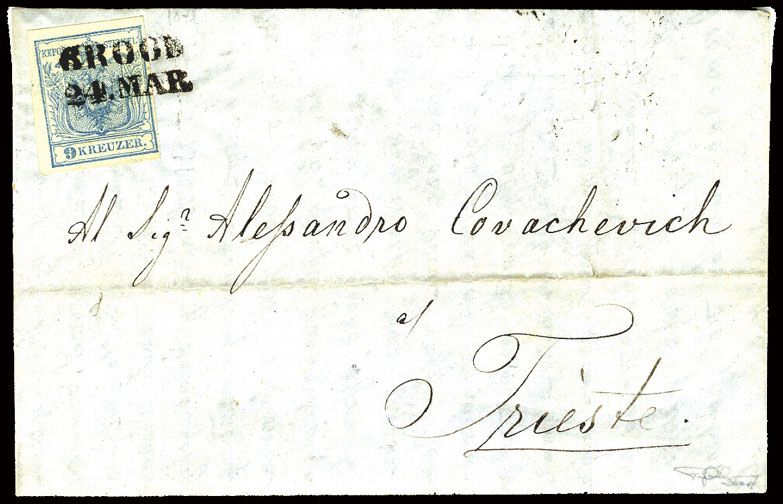 24.MAR.
9 KREUZER.
Al Sig.r Aleſsandro Covachevich
a/
Trieste.